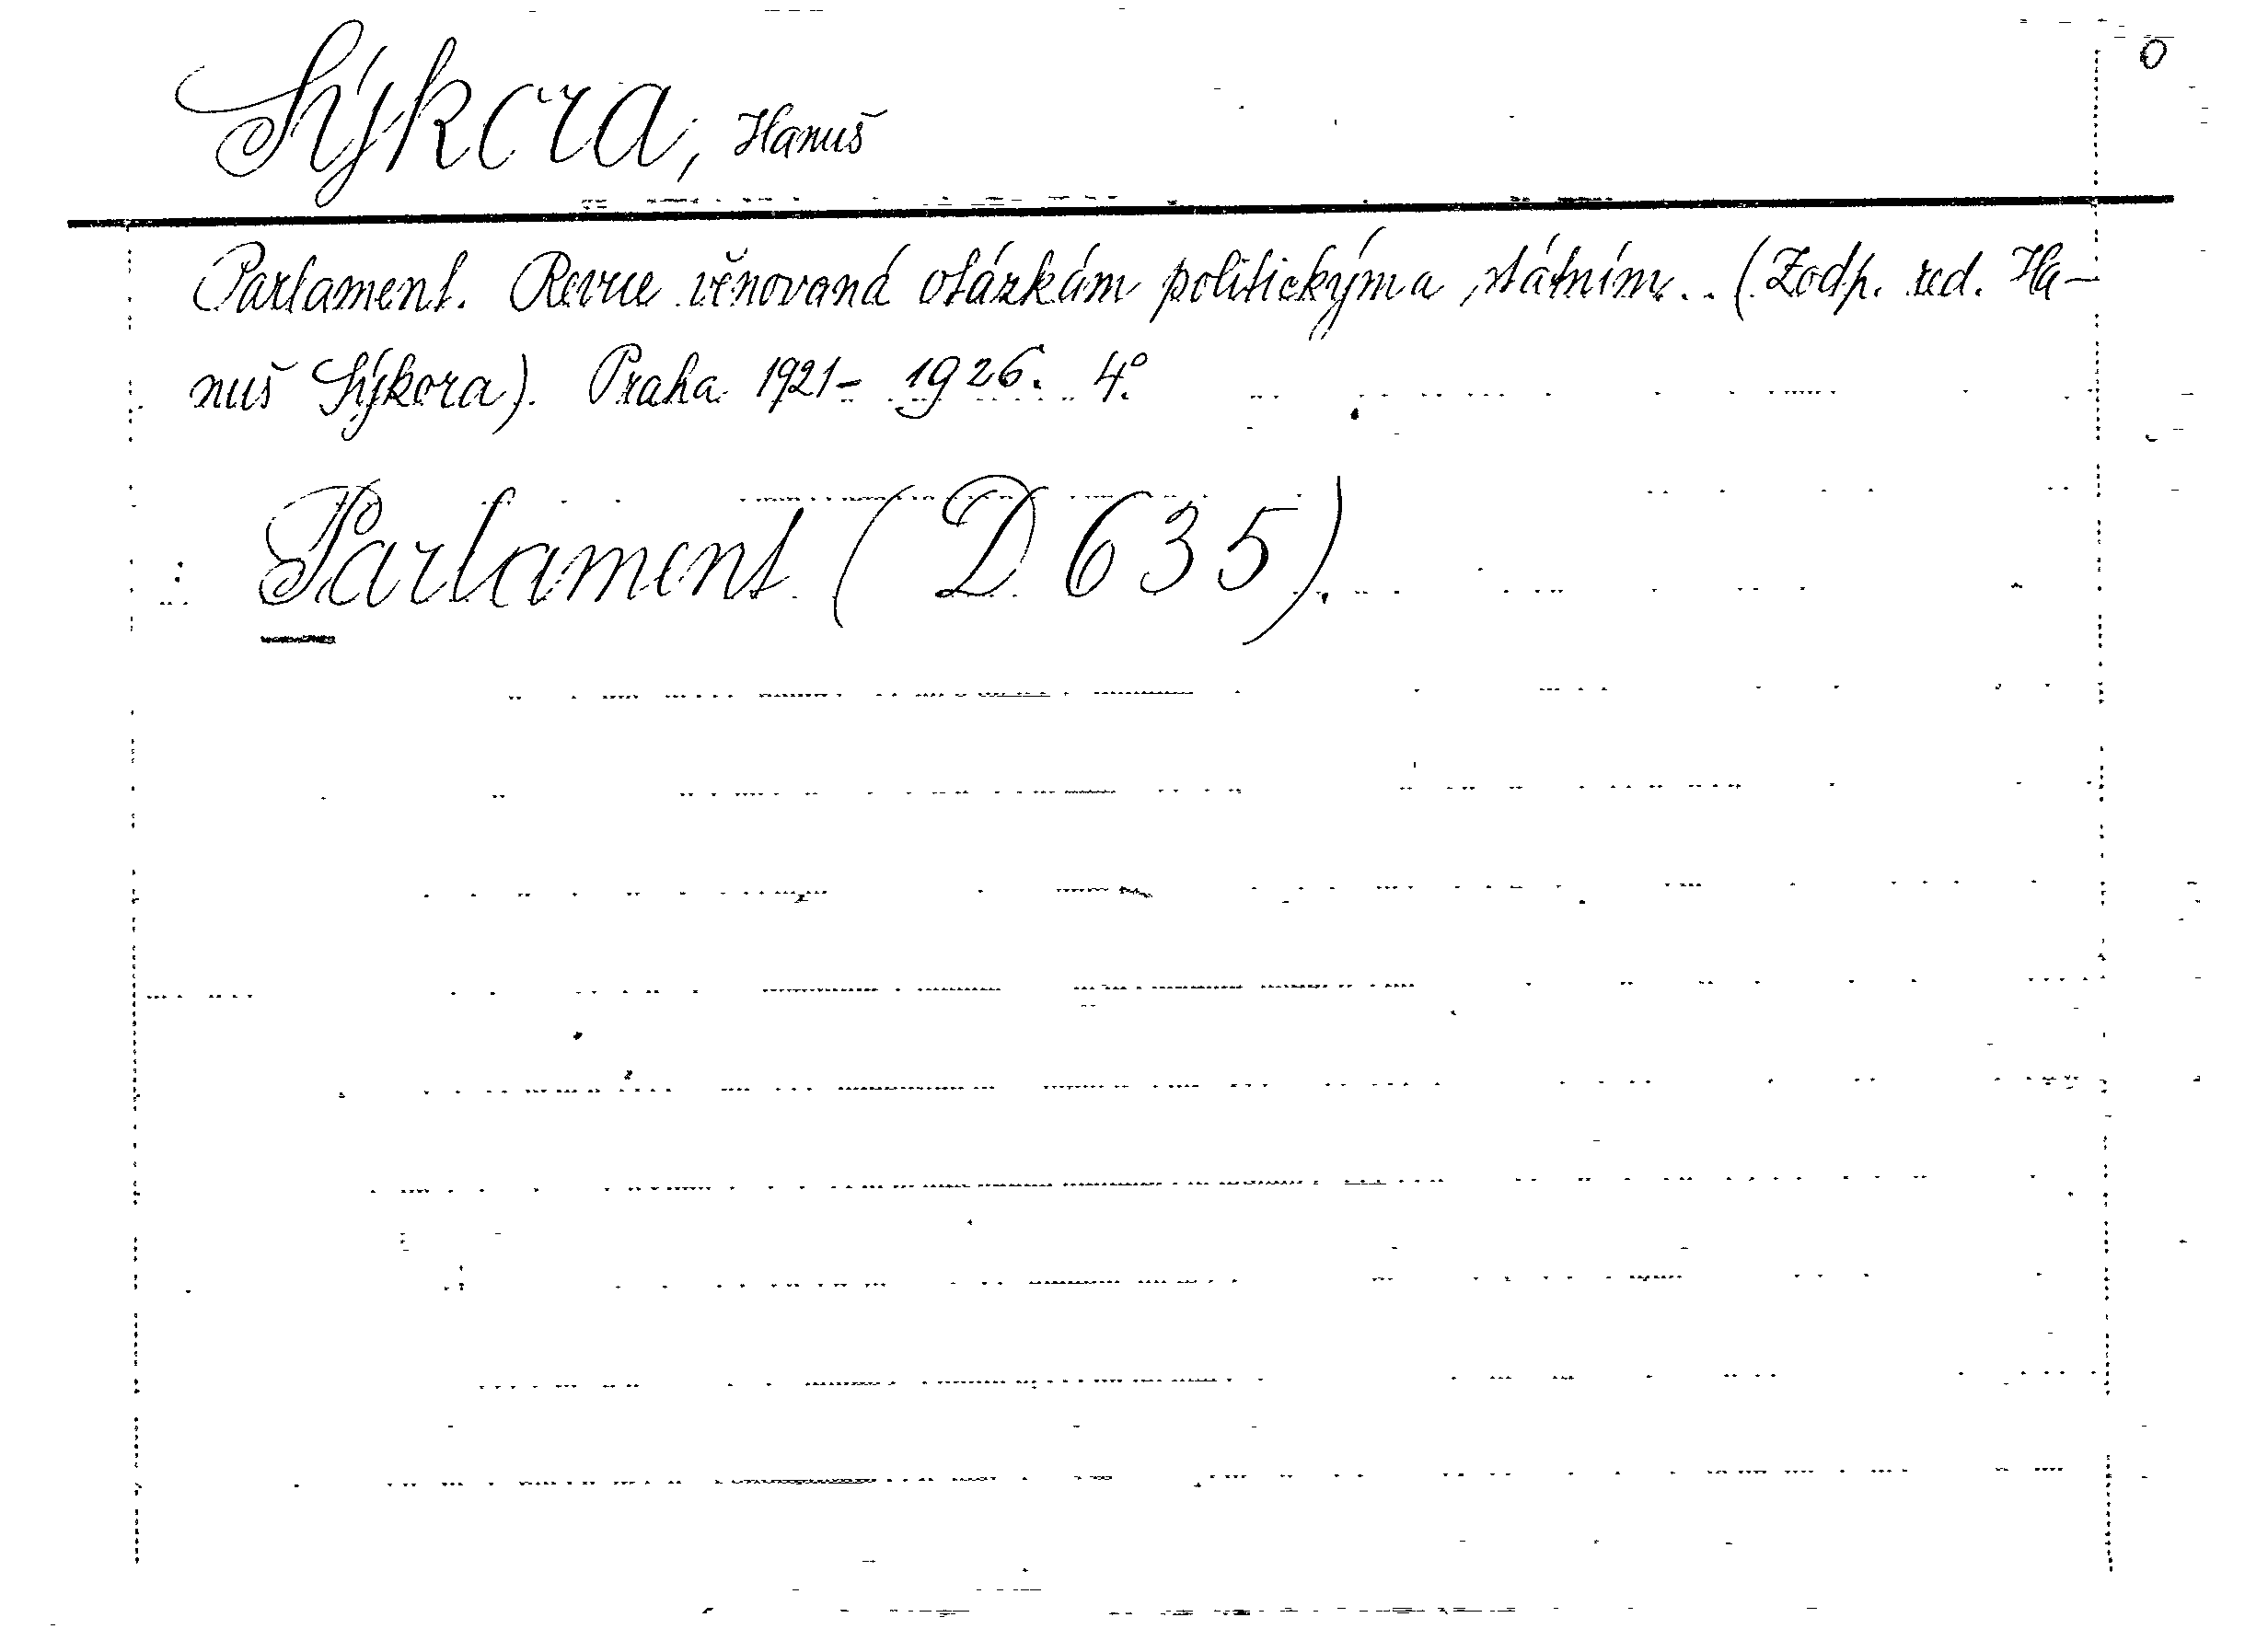 Sýkora, Hanuš
0
Parlament. Revue věnovaná otázkám politickým a státním.. (Zodp. red. Ha-
nuš Sýkora). Praha 1921- 1926. 4°.
Parlament (D 635).